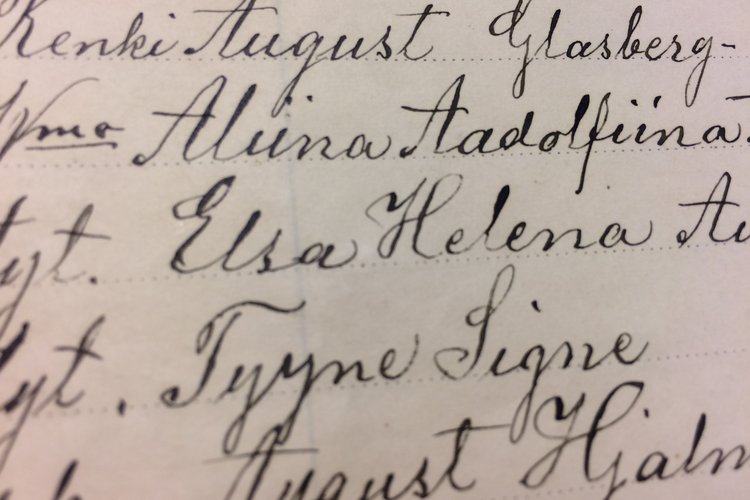 Renki August Glasberg-
Vmo Aliina Aadolfiina
tyt. Elsa Helena Au
tyt. Tyyne Signe
August Hjalm